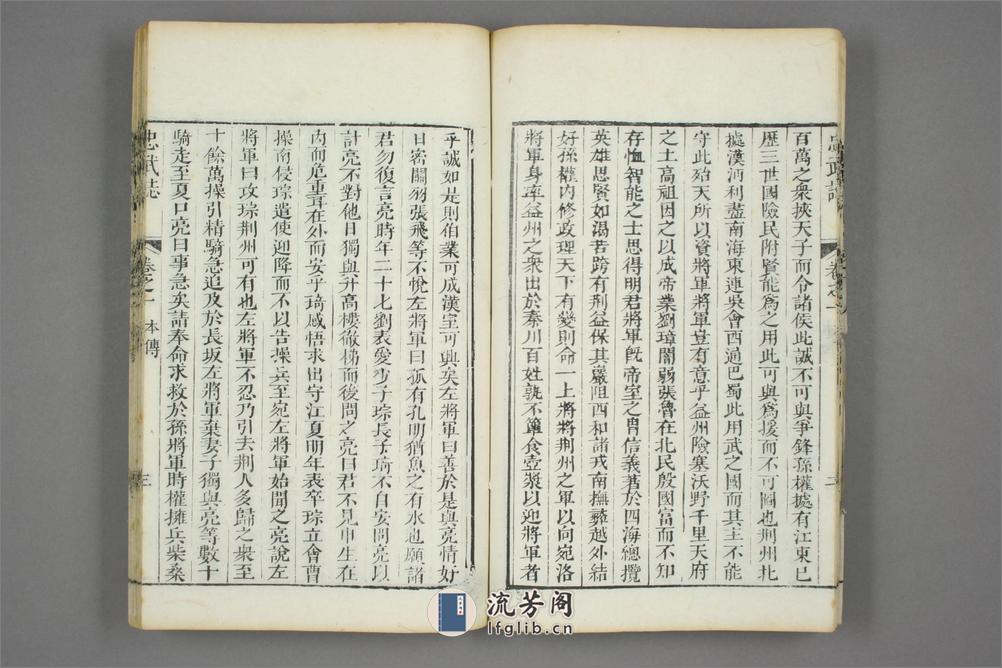 百萬之衆挾天子而令諸侯此誠不可與爭鋒孫權據有江東已
歷三世國險民附賢能爲之用此可與爲援而不可圖也荆州北
據漢沔利盡南海東連吳會西通巴蜀此用武之國而其主不能
守此殆天所以資將軍將軍豈有意乎益州險塞沃野千里天府
之土高祖因之以成帝業劉璋闇弱張魯在北民殷國富而不知
存恤智能之士思得明君將軍旣帝室之胄信義著於四海總攬
英雄思賢如渴若跨有荆益保其巖阻西和諸戎南撫彝越外結
好孫權內修政理天下有變則命一上將將荆州之軍以向宛洛
將軍身率益州之衆出於秦川百姓孰不簞食壺漿以迎將軍者
忠武誌
卷之一
乎誠如是則伯業可成漢室可興矣左將軍曰善於是與亮情好
日密關羽張飛等不悅左將軍曰孤有孔明猶魚之有水也願諸
君勿復言亮時年二十七劉表愛少子琮長子琦不自安問亮以
計亮不對他日獨與升高樓徹梯而後問之亮曰君不見申生在
內而危重耳在外而安乎琦感悟求出守江夏明年表卒琮立會曹
操南侵琮遣使迎降而不以告操兵至宛左將軍始聞之亮說左
將軍曰攻琮荆州可有也左將軍不忍乃引去荆人多歸之衆至
十餘萬操引精騎急追及於長坂左將軍棄妻子獨與亮等數十
騎走至夏口亮曰事急矣請奉命求救於孫將軍時權擁兵柴桑
忠武誌
卷之一
本傳
三
流芳阁
lfglib.cn